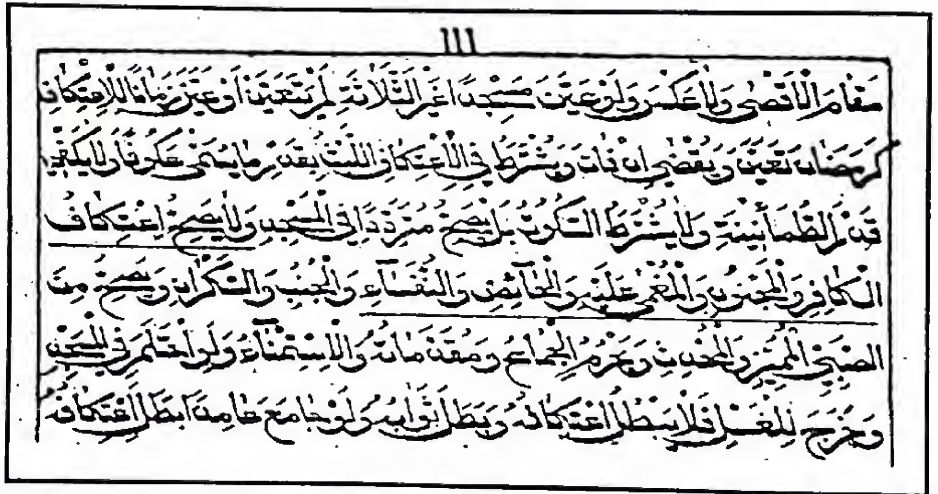 ١١١
مَقَامَ الْأَقْصٰى وَلَا عَكْسَ وَلَوْ عَيَّنَ مَسْجِدًا غَيْرَ الثَّلَاثَةِ لَمْ يَتَعَيَّنْ أَوْ عَيَّنَ زَمَانًا لِلْاِعْتِكَافِ
كَرَمَضَانَ تَعَيَّنَ وَيُقْضٰى إِنْ فَاتَ وَيُشْتَرَطُ فِي الْاِعْتِكَافِ اللُّبْثُ بِقَدْرِ مَا يُسَمّٰى عُكُوفًا وَلَا يَكْفِي
قَدْرُ الطُّمَأْنِينَةِ وَلَا يُشْتَرَطُ السُّكُوتُ بَلْ يَصِحُّ مُتَرَدِّدًا فِي الْمَسْجِدِ وَلَا يَصِحُّ اعْتِكَافُ
الْكَافِرِ وَالْمَجْنُونِ وَالْمُغْمٰى عَلَيْهِ وَالْحَائِضِ وَالنُّفَسَاءِ وَالْجُنُبِ وَالسَّكْرَانِ وَيَصِحُّ مِنَ
الصَّبِيِّ الْمُمَيِّزِ وَالْمُحْدِثِ وَيَحْرُمُ الْجِمَاعُ وَمُقَدِّمَاتُهُ وَالْاِسْتِمْنَاءُ وَلَوِ احْتَلَمَ فِي الْمَسْجِدِ
وَخَرَجَ لِلْغُسْلِ فَلَا يَبْطُلُ اعْتِكَافُهُ وَيَبْطُلُ ثَوَابُهُ وَلَوْ جَامَعَ عَامِدًا بَطَلَ اعْتِكَافُهُ